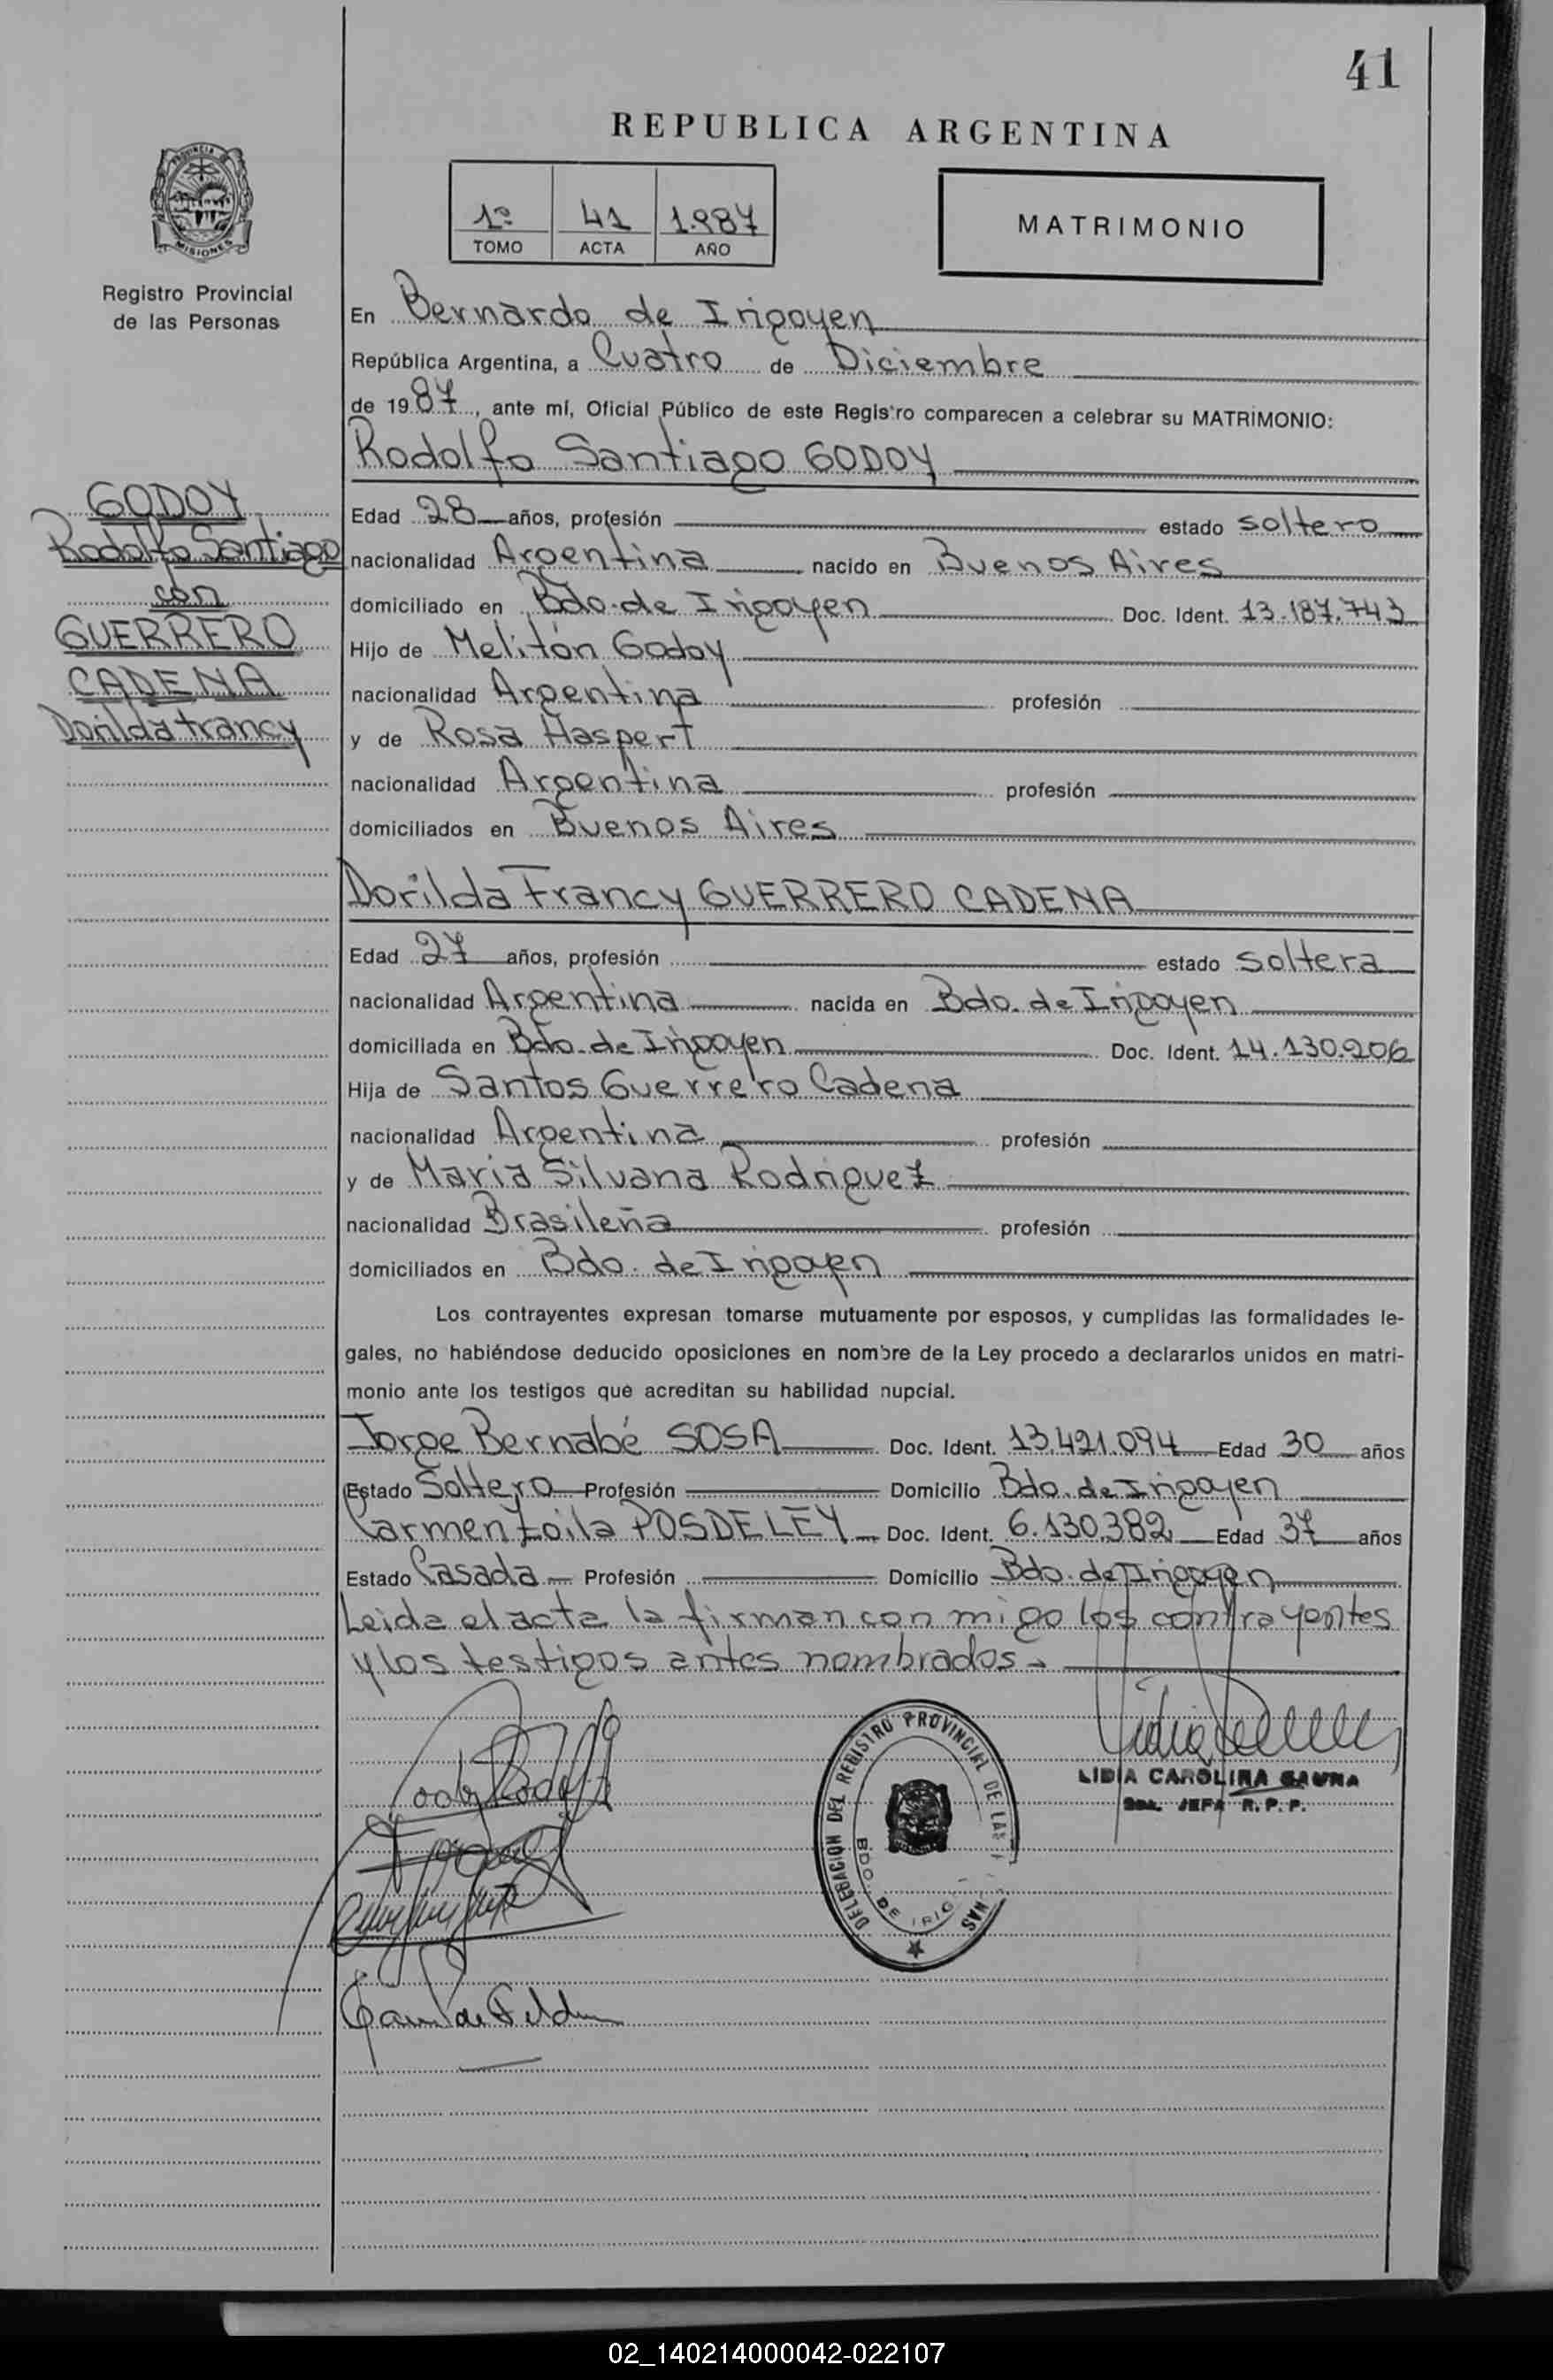 41
REPUBLICA ARGENTINA
1º 41 1.987
TOMO ACTA AÑO
MATRIMONIO
PROVINCIA
MISIONES
Registro Provincial
de las Personas
GODOY
Rodolfo Santiago
con
GUERRERO
CADENA
Dorilda Francy
En Bernardo de Irigoyen
República Argentina, a Cuatro de Diciembre
de 1987, ante mí, Oficial Público de este Registro comparecen a celebrar su MATRIMONIO:
Rodolfo Santiago GODOY
Edad 28 años, profesión estado soltero
nacionalidad Argentina nacido en Buenos Aires
domiciliado en Bdo. de Irigoyen Doc. Ident. 13.187.743
Hijo de Melitón Godoy
nacionalidad Argentina profesión
y de Rosa Haspert
nacionalidad Argentina profesión
domiciliados en Buenos Aires
Dorilda Francy GUERRERO CADENA
Edad 27 años, profesión estado soltera
nacionalidad Argentina nacida en Bdo. de Irigoyen
domiciliada en Bdo. de Irigoyen Doc. Ident. 14.130.206
Hija de Santos Guerrero Cadena
nacionalidad Argentina profesión
y de Maria Silvana Rodriguez
nacionalidad Brasileña profesión
domiciliados en Bdo. de Irigoyen
Los contrayentes expresan tomarse mutuamente por esposos, y cumplidas las formalidades le-
gales, no habiéndose deducido oposiciones en nombre de la Ley procedo a declararlos unidos en matri-
monio ante los testigos que acreditan su habilidad nupcial.
Jorge Bernabé SOSA Doc. Ident. 13.421.094 Edad 30 años
Estado Soltero Profesión Domicilio Bdo. de Irigoyen
Carmen Zoila POSDELEY Doc. Ident. 6.130.382 Edad 37 años
Estado Casada Profesión Domicilio Bdo. de Irigoyen
Leida el acta la firman con migo los contrayentes
y los testigos antes nombrados.
LIDIA CAROLINA GAUNA
JEFA R.P.P.
DELEGACION DEL REGISTRO PROVINCIAL DE LAS
BDO. DE IRIG
02_140214000042-022107